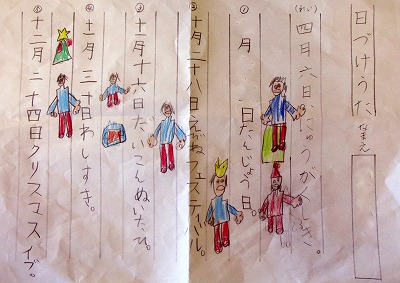 日づけうた なまえ
(れい) 四月六日、にゅうがくしき。
① 月 日たんじょう日。
② 十月二十八日フェスティバル。
③ 十月十六日だいこんぬいたひ。
④ 十一月三十日わしすき。
⑤ 十二月二十四日クリスマスイブ。